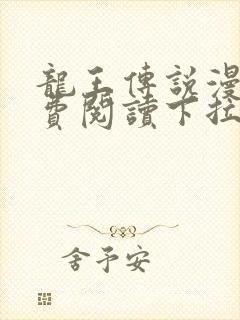 龍王傳說漫
費閱讀下拉
舍予安